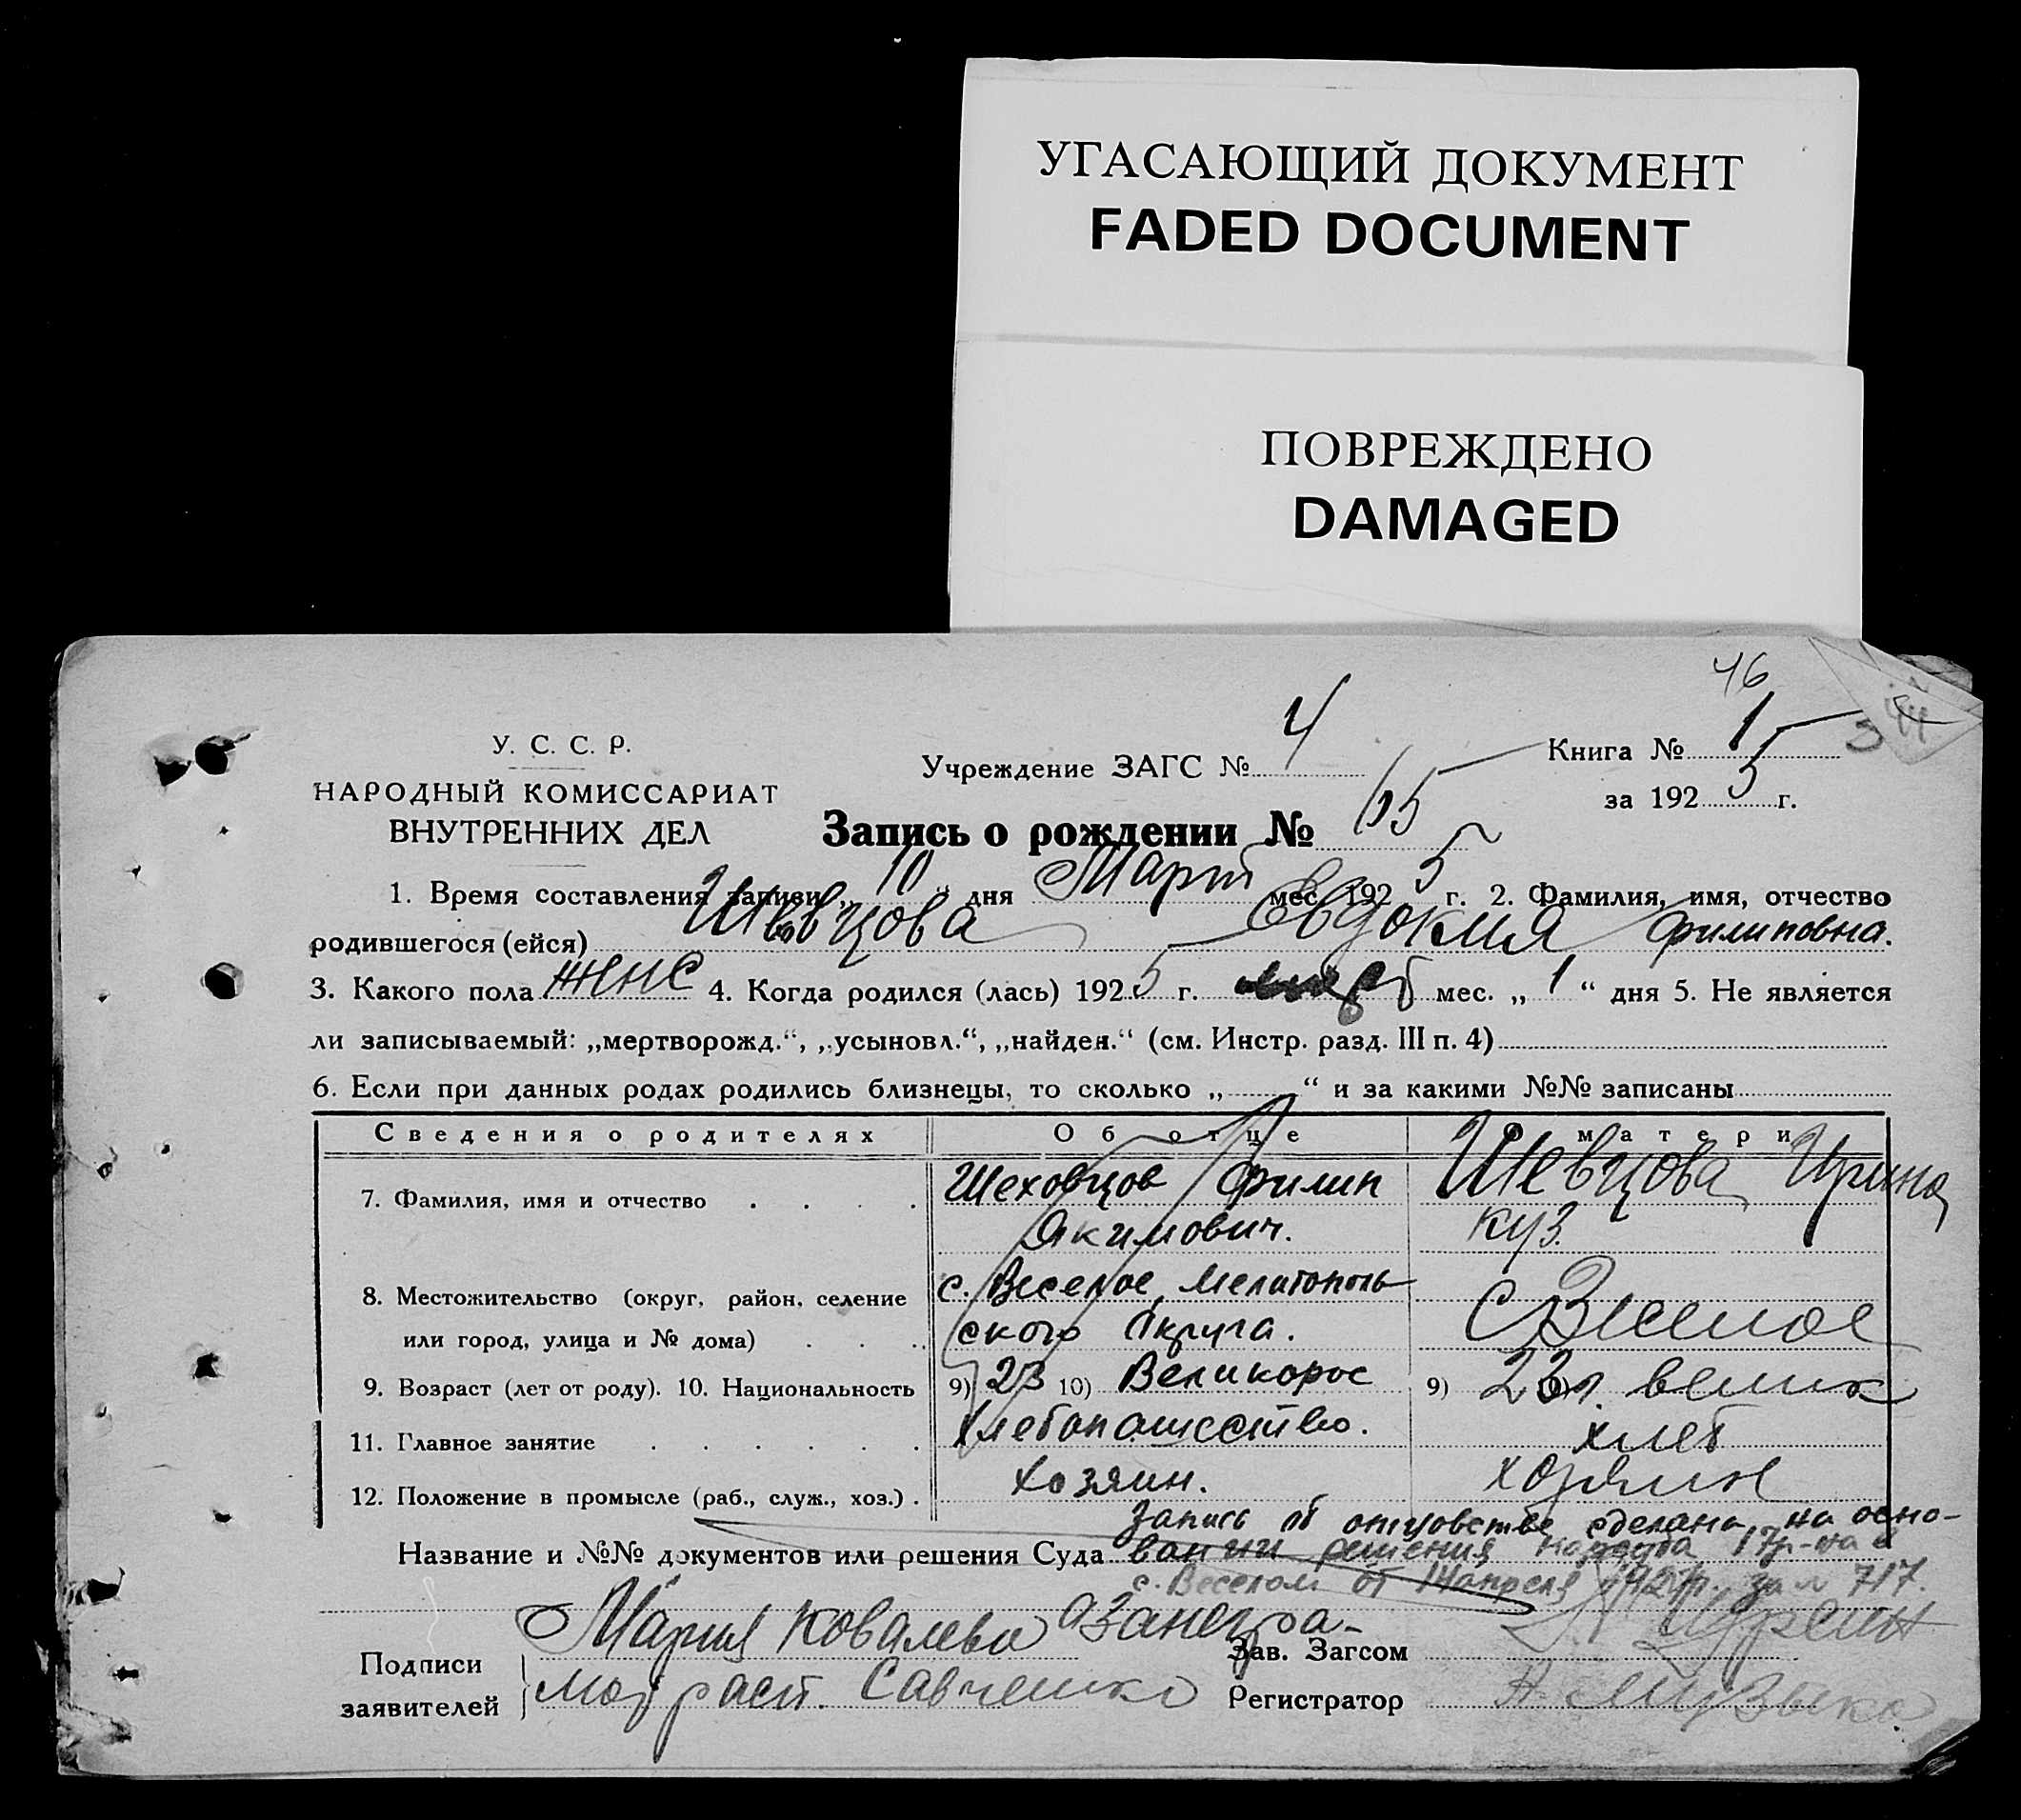 УГАСАЮЩИЙ ДОКУМЕНТ
FADED DOCUMENT
ПОВРЕЖДЕНО
DAMAGED
46
44
У. С. С. Р.
НАРОДНЫЙ КОМИССАРИАТ
ВНУТРЕННИХ ДЕЛ
Учреждение ЗАГС № 4
Книга № 1
за 1925 г.
Запись о рождении № 65
1. Время составления записи „ 10 “ дня Март мес. 1925 г. 2. Фамилия, имя, отчество
родившегося (ейся) Шевцова Евдокия Филиповна.
3. Какого пола женс 4. Когда родился (лась) 1925 г. мес. „ 1 “ дня 5. Не является
ли записываемый: „мертворожд.“, „усыновл.“, „найден.“ (см. Инстр. разд. III п. 4)
6. Если при данных родах родились близнецы, то сколько „ “ и за какими №№ записаны
Сведения о родителях Об отце О матери
7. Фамилия, имя и отчество . . . . Шеховцов Филип Шевцова Ирина
Якимович. Куз.
8. Местожительство (округ, район, селение с. Веселое, Мелитополь
или город, улица и № дома) . . . ского Округа. с Веселое
9. Возраст (лет от роду). 10. Национальность 9) 23 10) Великорос 9) 23 л. велик
11. Главное занятие . . . . . . Хлебопашество. хлеб
12. Положение в промысле (раб., служ., хоз.) . Хозяин. хозяин
Запись об отцовстве сделана на осно-
Название и №№ документов или решения Суда вании решения Нарсуда
с. Веселом от 14 апреля за № 717.
Мария Ковалева
Подписи Зав. Загсом
заявителей Савченко Регистратор А. Музыка